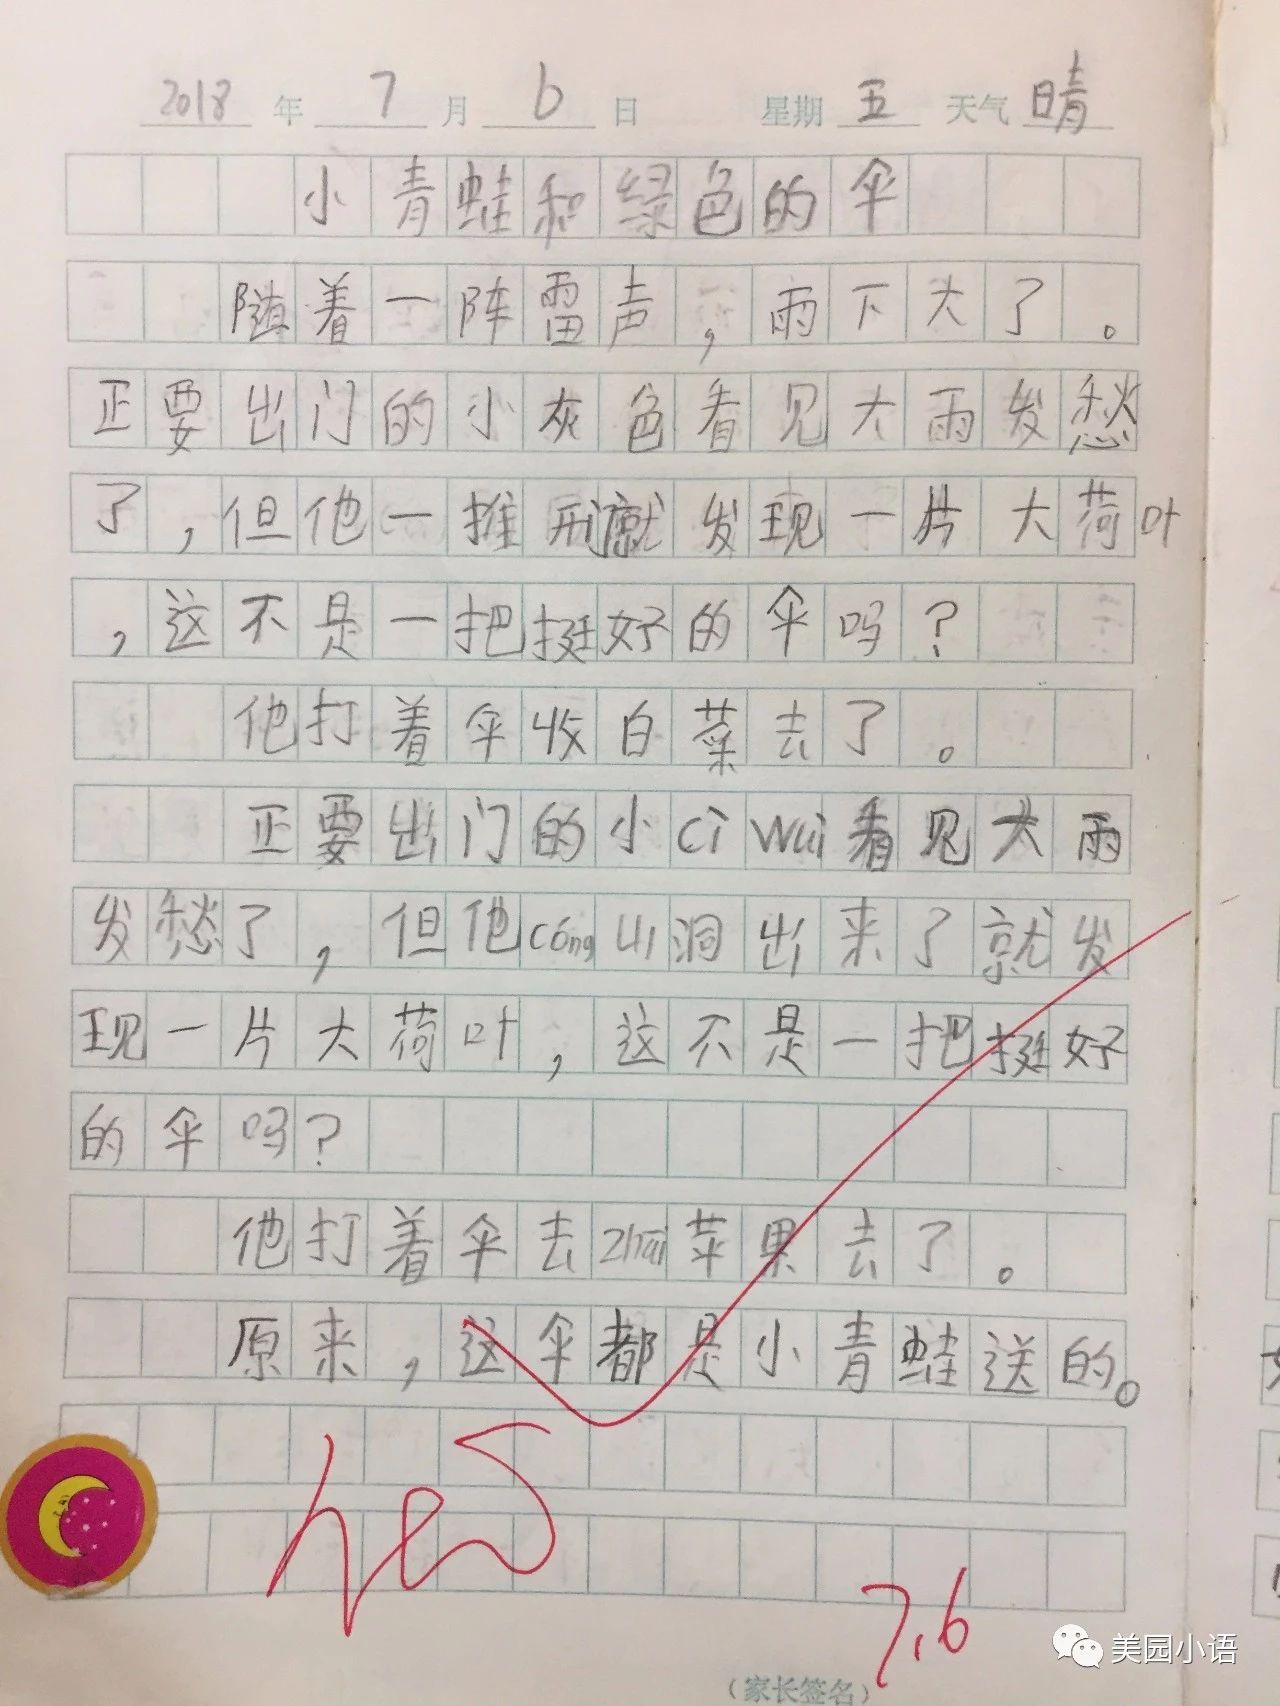 2018 年 7 月 6 日 星期 五 天气 晴
小青蛙和绿色的伞
随着一阵雷声，雨下大了。
正要出门的小灰色看见大雨发愁
了，但他一推就发现一片大荷叶
，这不是一把挺好的伞吗？
他打着伞收白菜去了。
正要出门的小cì wui看见大雨
发愁了，但他cóng山洞出来了就发
现一片大荷叶，这不是一把挺好
的伞吗？
他打着伞去zhāi苹果去了。
原来，这伞都是小青蛙送的。
7.6
（家长签名）
美园小语